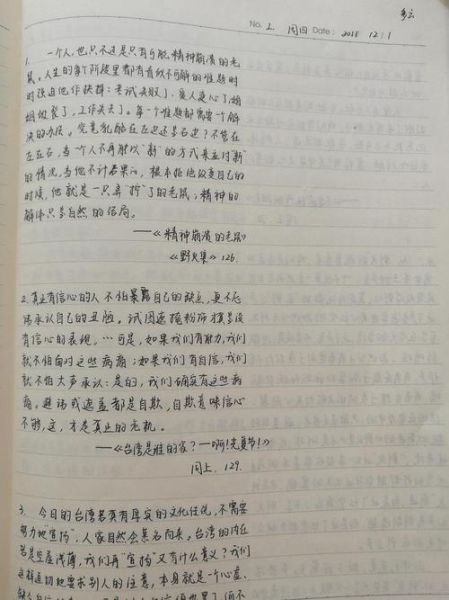 多云
No. 2. 周四 Date: 2018 12/1
1. 一个人,也只不过是只有可能精神崩溃的老
鼠。人生的每个阶段里都有看似不可解的难题时
时强迫他作抉择:考试失败了、爱人变心了、婚
姻破裂了,工作失去了。每一个难题都需要一个解
决的办法,究竟乳酪在左边还是右边?不管在
左在右,当一个人不再能以“新”的方式来应付“新”
的情况,当他不计后果的、根本拒绝改变自己的
时候,他就是一只 了的老鼠;精神的
解体只是自然的结局。
——《精神崩溃的老鼠》
《野火集》126.
2. 真正有信心的人不怕暴露自己的缺点,更不忌
讳承认自己的丑陋。试图遮掩粉饰才是没
有信心的表现。…可是,如果我们有能力,我们
就不怕面对这些病痛;如果我们有自信,我们
就不怕大声承认:是的,我们确实有这些病
痛。避讳或遮盖都是自欺,自欺意味信心
不够,这,才是真正的危机。
——《台湾是谁的家?——啊!光复节!》
同上. 129.
3. 今日的台湾若真有厚实的文化传统,不需要
努力地“宣扬”,人家自然会慕名而来。台湾的内在
若是空虚浅薄,我们再“宣扬”又有什么意义?我们
这样迫切地要求别人的注意,本身就是一个心虚、